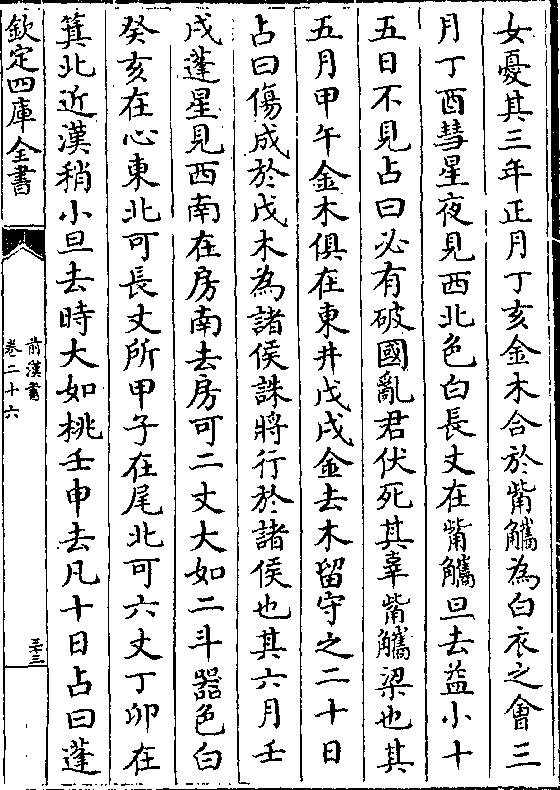 女憂其三年正月丁亥金木合於觜觿為白衣之會三
月丁酉彗星夜見西北色白長丈在觜觿旦去益小十
五日不見占曰必有破國亂君伏死其辜觜觿梁也其
五月甲午金木俱在東井戊戌金去木留守之二十日
占曰傷成於戊木為諸侯誅將行於諸侯也其六月壬
戌蓬星見西南在房南去房可二丈大如二斗器色白
癸亥在心東北可長丈所甲子在尾北可六丈丁卯在
箕北近漢稍小旦去時大如桃壬申去凡十日占曰蓬
欽定四庫全書
前漢書
卷二十六
三十三